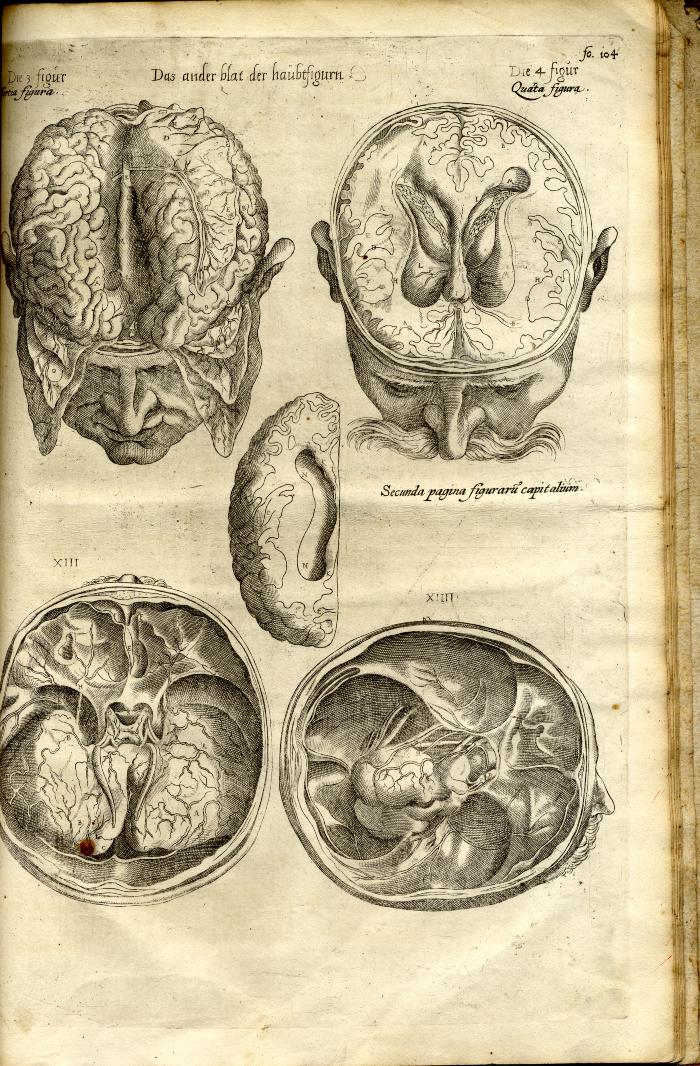 fo. 104
Die 3 figur
Das ander blat der haubtfigurn
Die 4 figur
tertia figura.
Quarta figura.
Secunda pagina figurarũ capitalium.
N
XIII
XIIII